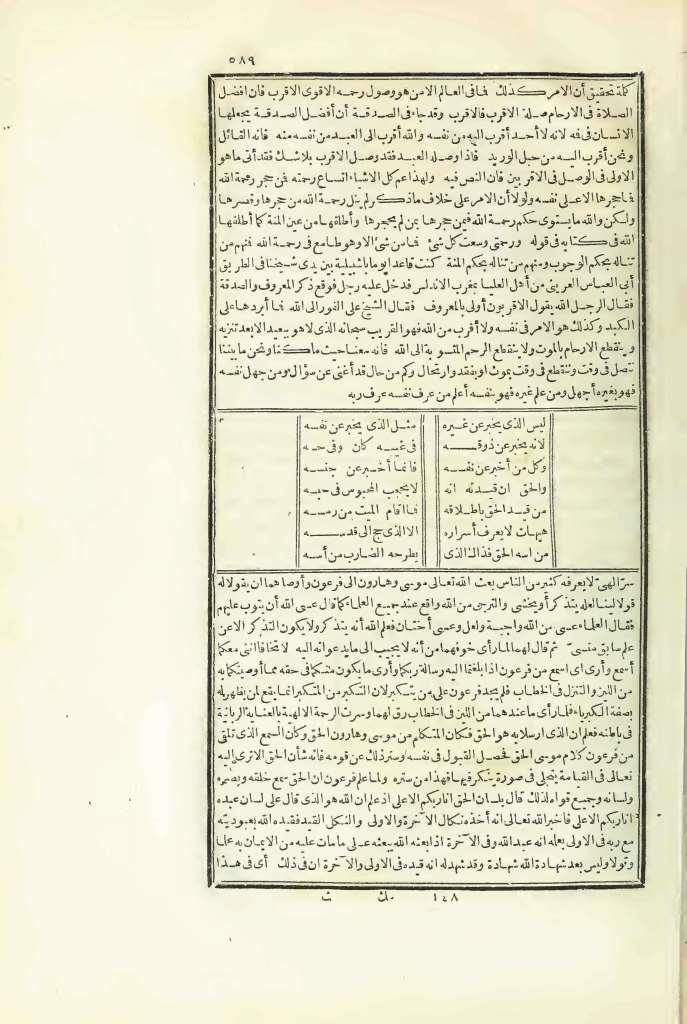 ٥٨٩
كلمة تحقيق أن الامر كذلك فما فى العالم الا من هو وصول رحمه الاقوى الاقرب فان افضل
الصلاة فى الارحام صلة الاقرب فالاقرب وقد جاء فى الصدقة أن أفضل الصدقة يجعلها
الانسان فى فه لانه لا أحد أقرب اليه من نفسه والله أقرب الى العبد من نفسه منه فانه القائل
ونحن أقرب اليه من حبل الوريد فاذا وصله العبد فقد وصل الاقرب بلا شك فقد أتى ما هو
الاولى فى الوصل فى الاقربين فان النص فيه ولهذا عم كل الاشياء اتساع رحمته فمن حجر رحمة الله
فما حجرها الا على نفسه ولولا أن الامر على خلاف ما ذكر لم ينل رحمة الله من حجرها وقصرها
ولكن والله ما يستوى حكم رحمة الله فيمن حجرها بمن لم يحجرها وأطلقها من عين المنة كما أطلقها
الله فى كتابه فى قوله ورحمتى وسعت كل شئ فما من شئ الا وهو طامع فى رحمة الله فمنهم من
تناله بحكم الوجوب ومنهم من تناله بحكم المنة كنت قاعدا يوما باشبيلية بين يدى شيخنا فى الطريق
أبى العباس العرينى من أهل العليا بمغرب الاندلس فدخل عليه رجل فوقع ذكر المعروف والصدقة
فقال الرجل الله يقول الاقربون أولى بالمعروف فقال الشيخ على الفور الى الله فما أبردها على
الكبد وكذلك هو الامر فى نفسه ولا أقرب من الله فهو القريب سبحانه الذى لا هو ببعيد الا بعد تنزيه
وينقطع الارحام بالموت ولا ينقطع الرحم المنسوبة الى الله فانه معنا حيث ما كنا ونحن ما بيننا
نتصل فى وقت وننقطع فى وقت بموت او بفقد وارتحال وكم من حال قد أغنى عن سؤال ومن جهل نفسه
فهو بغيره أجهل ومن علم غيره فهو بنفسه أعلم من عرف نفسه عرف ربه
ليس الذى يخبر عن غيره مثل الذى يخبر عن نفسه
لانه يخبر عن ذوقه فى غيبه كان وفى حسه
وكل من أخبر عن نفسه فانما أخبر عن جنسه
والحق ان قيدته انه لا يحجب المحبوس فى حبسه
من قيد الحق باطلاقه فما اقام الميت من رمسه
هيهات لا يعرف أسراره الا الذى حج الى قدسه
من اسه الحق فذاك الذى يطرحه الضارب من أسه
سر الهى لا يعرفه كثير من الناس بعث الله تعالى موسى وهارون الى فرعون وأوصاهما ان يقولا له
قولا لينا لعله يتذكر أو يخشى والترجى من الله واقع عند جميع العلماء كما قال عسى الله أن يتوب عليهم
فقال العلماء عسى من الله واجبة ولعل وعسى أختان فعلم الله أنه يتذكر ولا يكون التذكر الا عن
علم سابق منسى ثم قال لهما لما رأى خوفهما من أنه لا يجيب الى ما يدعوانه اليه لا تخافا اننى معكما
أسمع وأرى اى اسمع من فرعون اذا بلغتما اليه رسالة ربكما وأرى ما يكون منكما فى حقه مما أوصيتكما به
من اللين والتنزل فى الخطاب فلم يجد فرعون على من يتكبر لان التكبر من المتكبر انما يقع لمن يظهر له
بصفة الكبرياء فلما رأى ما عندهما من اللين فى الخطاب رق لهما وسرت الرحمة الالهية بالعناية الربانية
فى باطنه فعلم ان الذى ارسلا به هو الحق فكان المتكلم من موسى وهارون الحق وكان السمع الذى تلقى
من فرعون كلام موسى الحق فحصل القبول فى نفسه وستر ذلك عن قومه فانه شأن الحق الا ترى اليه
تعالى فى القيامة يتجلى فى صورة ينكر فيها فهذا من ستره ولما علم فرعون ان الحق سمع خلقه وبصره
ولسانه وجميع قواه لذلك قال بلسان الحق انا ربكم الاعلى اذ علم ان الله هو الذى قال على لسان عبده
انا ربكم الاعلى فاخبر الله تعالى انه أخذه نكال الآخرة والاولى والنكل القيد فقيده الله بعبوديته
مع ربه فى الاولى بعلمه انه عبد الله وفى الآخرة اذا بعثه الله يبعثه على ما مات عليه من الايمان به علما
وقولا وليس بعد شهادة الله شهادة وقد شهد له انه قيده فى الاولى والآخرة ان فى ذلك أى فى هذا
١٤٨ مك ث